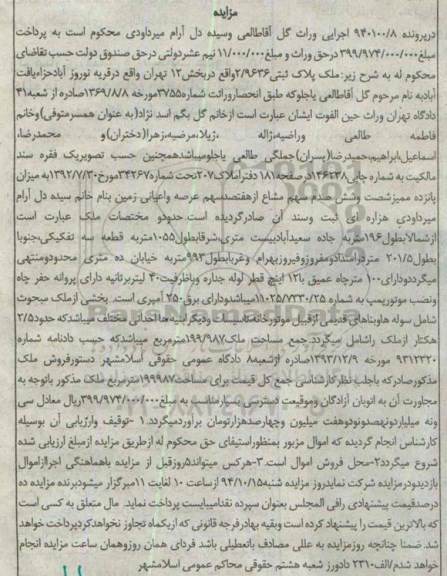 مزایده
درپرونده ۹۴۰۱۰۰/۸ اجرایی وراث گل آقاطالعی وسیده دل آرام میردادودی محکوم است به پرداخت
مبلغ ۳۹۹/۹۷۴/۰۰۰/۰۰۰ درحق وراث و مبلغ ۱۱/۰۰۰/۰۰۰ نیم عشردولتی درحق صندوق دولت حسب تقاضای
محکوم له به شرح زیر: ملک پلاک ثبتی ۲/۹۶۳۶ واقع دربخش ۱۲ تهران واقع درقریه نوروز آبادجزءیافت
آبادبه نام مرحوم گل آقاطالعی یاجلوکه طبق انحصاروراثت شماره ۳۷۵۵ مورخه ۱۳۶۹/۸/۸ صادره از شعبه ۴۱
دادگاه تهران وراث حین الفوت ایشان عبارت است ازخانم گل بگم اسد نژاد(به عنوان همسرمتوفی)وخانم
فاطمه طالعی وراضیه،ژاله ،ژیلا،مرضیه،زهرا(دختران)و محمدرضا،
اسماعیل،ابراهیم،حمیدرضا(پسران)جملگی طالعی یاجلومیباشدهمچنین حسب تصویریک فقره سند
مالکیت به شماره چاپی ۱۴۶۲۳۸ درصفحه ۱۸۱ دفتراملاک ۲۰۷ تحت شماره ۳۴۲۶۷ مورخ ۱۳۹۲/۷/۳۰ به میزان
پانزده ممیزشصت وشش صدم سهم مشاع ازهفتصدسهم عرصه واعیانی زمین بنام خانم سیده دل آرام
میرداودی هزاره ای ثبت وسند آن صادرگردیده است.حدودو مختصات ملک عبارت است
ازشمالابطول ۱۹۶ متربه جاده سعیدآبادبیست متری،شرقابطول ۱۰۵۵ متربه قطعه سه تفکیکی،جنوبا
بطول ۲۰۱/۵ متردرامتدادومفروزوفیروزبهرام وغربابطول ۹۹۳ متربه خیابان ده متری محدودومنتهی
میگردددارای ۱۰۰ مترچاه عمیق با ۱۲ اینچ قطر لوله جداره وباظرفیت ۴۰ لیتربرثانیه دارای پروانه حفر چاه
ونصب موتورپمپ به شماره ۱۱۰۲۵/۷۳۳۰/۲۵ میباشدودارای برق ۲۵۰ آمپری است. بخشی ازملک مبحوث
شامل سوله هاوبناهای قدیمی ازقبیل موتورخانه تاسیسات ودیگرابنیه هااحداثی مختلف میباشدکه حدود ۲/۵
هکتار ازملک راشامل میگردد.جمع مساحت ملک ۱۹۹/۹۸۷ مترمربع میباشدکه حسب دادنامه شماره
۹۳۱۲۳۲۰ مورخه ۱۳۹۳/۱۲/۹ صادره ازشعبه ۸ دادگاه عمومی حقوقی اسلامشهر دستورفروش ملک
مذکورصادرکه باجلب نظرکارشناسی جمع کل قیمت برای مساحت ۱۹۹۹۸۷ مترمربع ملک مذکور باتوجه به
مجاورت آن به اتوبان آزادگان وموقیعت دسترسی بسیارمناسب به مبلغ ۳۹۹/۹۷۴/۰۰۰/۰۰۰ ریال معادل سی
ونه میلیاردونهصدونودوهفت میلیون وچهارصدهزارتومان برآوردمیگردد. ۱ -توقیف وارزیابی آن بوسیله
کارشناس انجام گردیده که اموال مزبور بمنظوراستیفای حق محکوم له ازطریق مزایده ازمبلغ ارزیابی شده
شروع میگردد ۲-محل فروش اموال است. ۳-هرکس میتواند ۵ روزقبل از مزایده باهماهنگی اجراازاموال
بازدیدودرمزایده شرکت نمایدروز مزایده شنبه ۹۴/۱۰/۱۵ ازساعت ۱۰ لغایت ۱۱ برگزار میشودبرنده مزایده ده
درصدقیمت پیشنهادی رافی المجلس بعنوان سپرده نقدامیبایست پرداخت نماید. مال متعلق به کسی است
که بالاترین قیمت را پیشنهاد کرده است وبقیه بهادرفرجه قانونی که ازیکماه تجاوز نخواهدکردپرداخت خواهد
شد. ضمنا چنانچه روزمزایده به عللی مصادف باتعطیلی باشد فردای همان روزوهمان ساعت مزایده انجام
خواهد شدم/الف ۲۳۱۰ دادورز شعبه هشتم حقوقی محاکم عمومی اسلامشهر